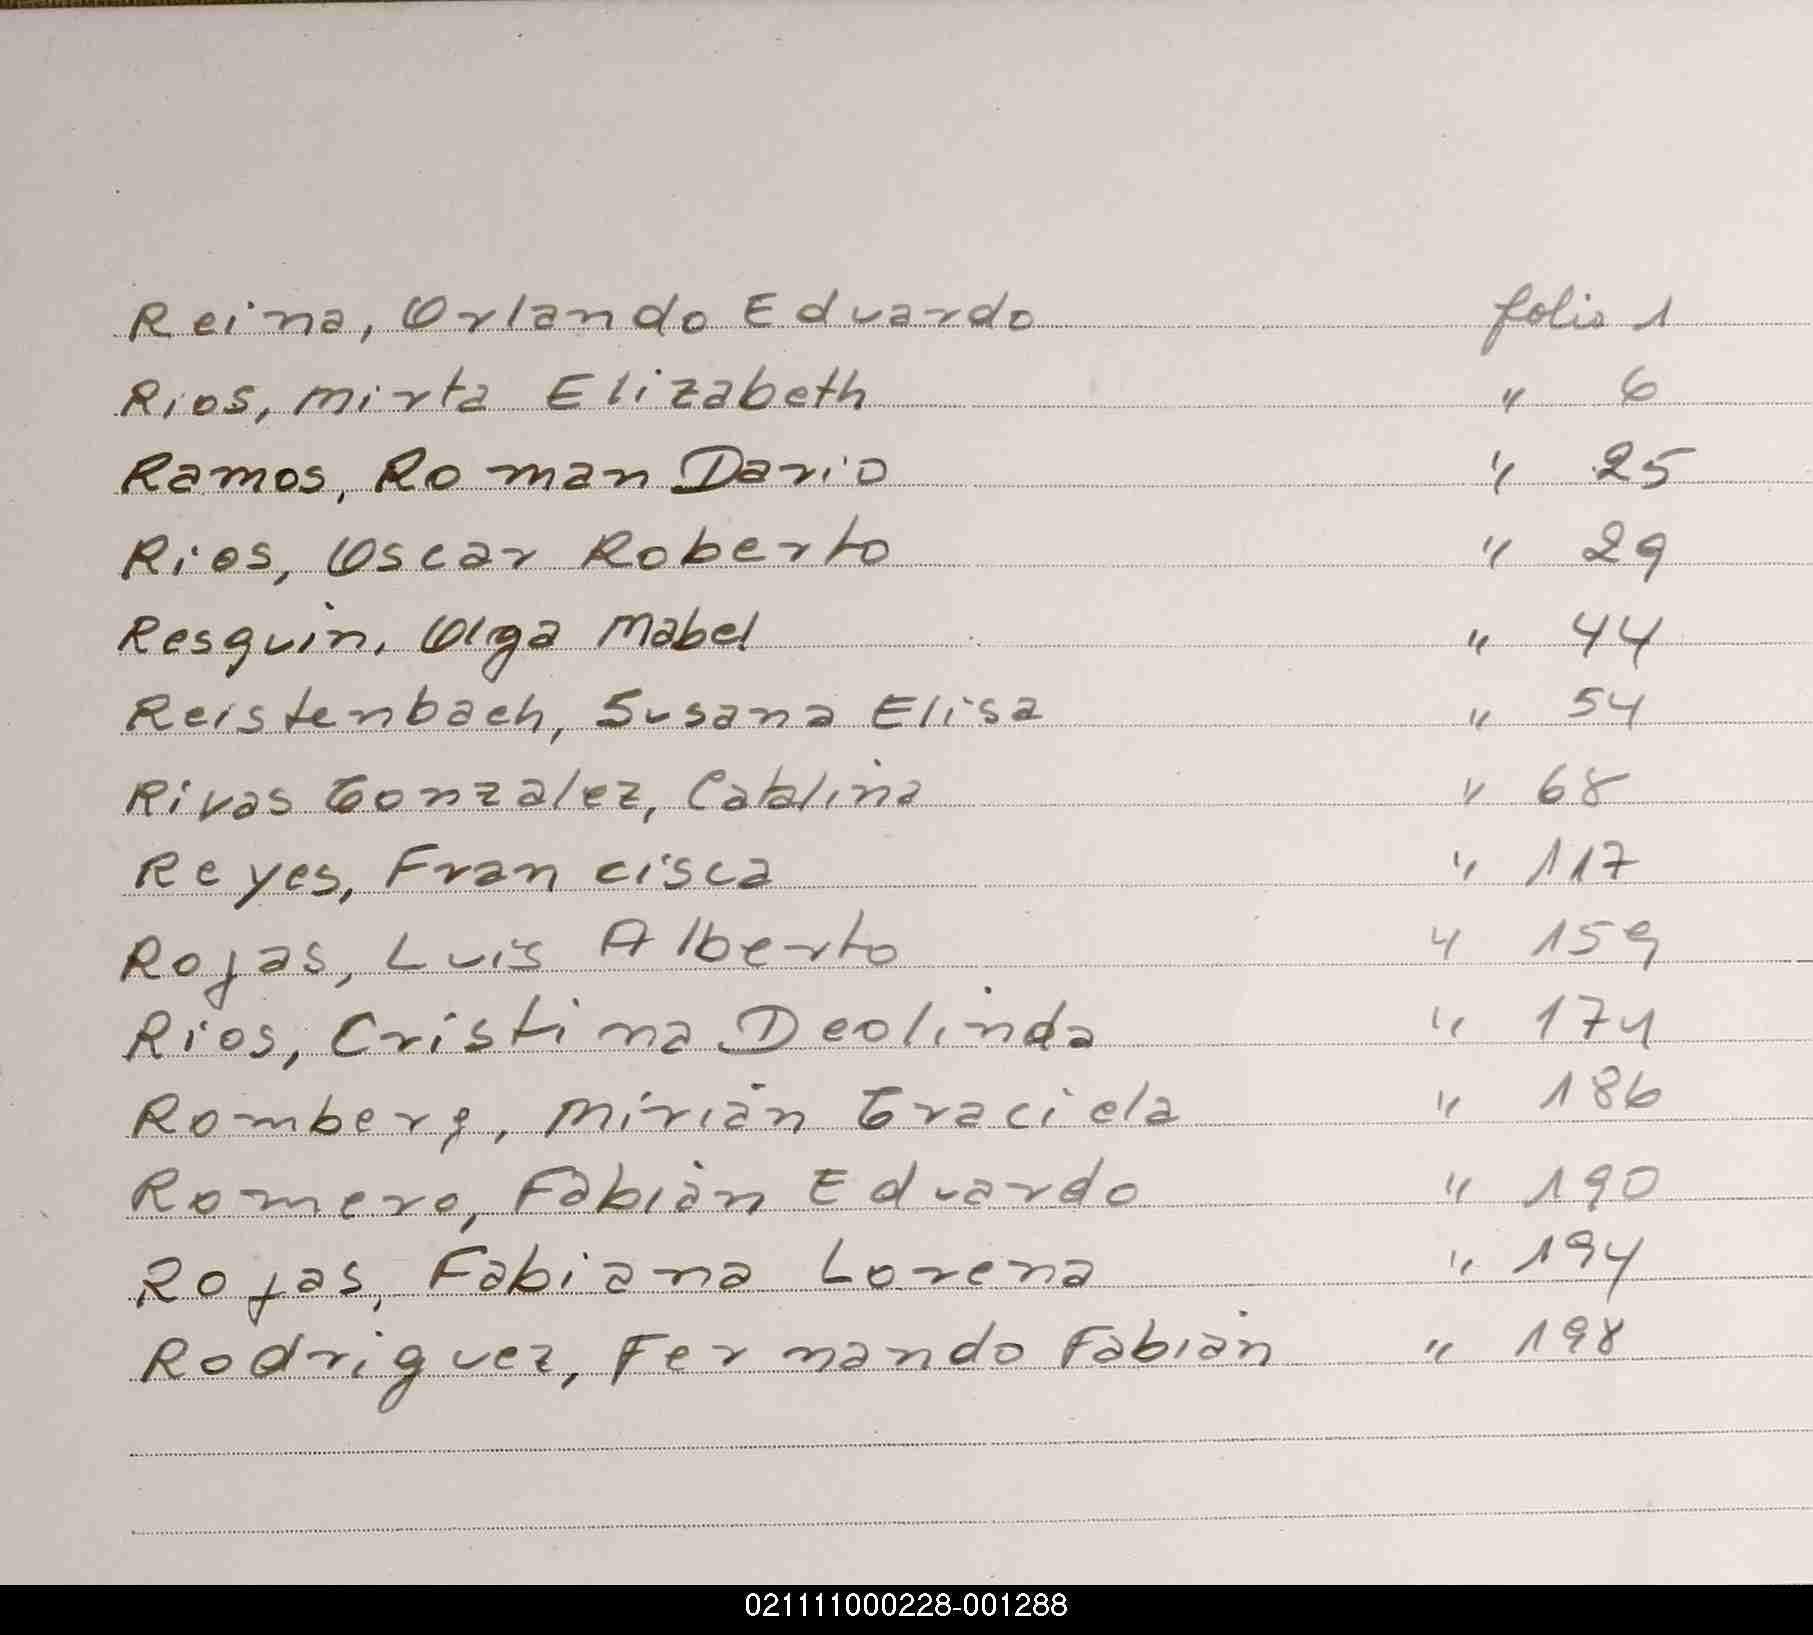 Reina, Orlando Eduardo folio 1
Rios, Mirta Elizabeth " 6
Ramos, Roman Dario " 25
Rios, Oscar Roberto " 29
Resquin, Olga Mabel " 44
Reistenbach, Susana Elisa " 54
Rivas Gonzalez, Catalina " 68
Reyes, Francisca " 117
Rojas, Luis Alberto " 159
Rios, Cristina Deolinda " 174
Romberg, Mirian Graciela " 186
Romero, Fabian Eduardo " 190
Rojas, Fabiana Lorena " 194
Rodriguez, Fernando Fabian " 198
021111000228-001288